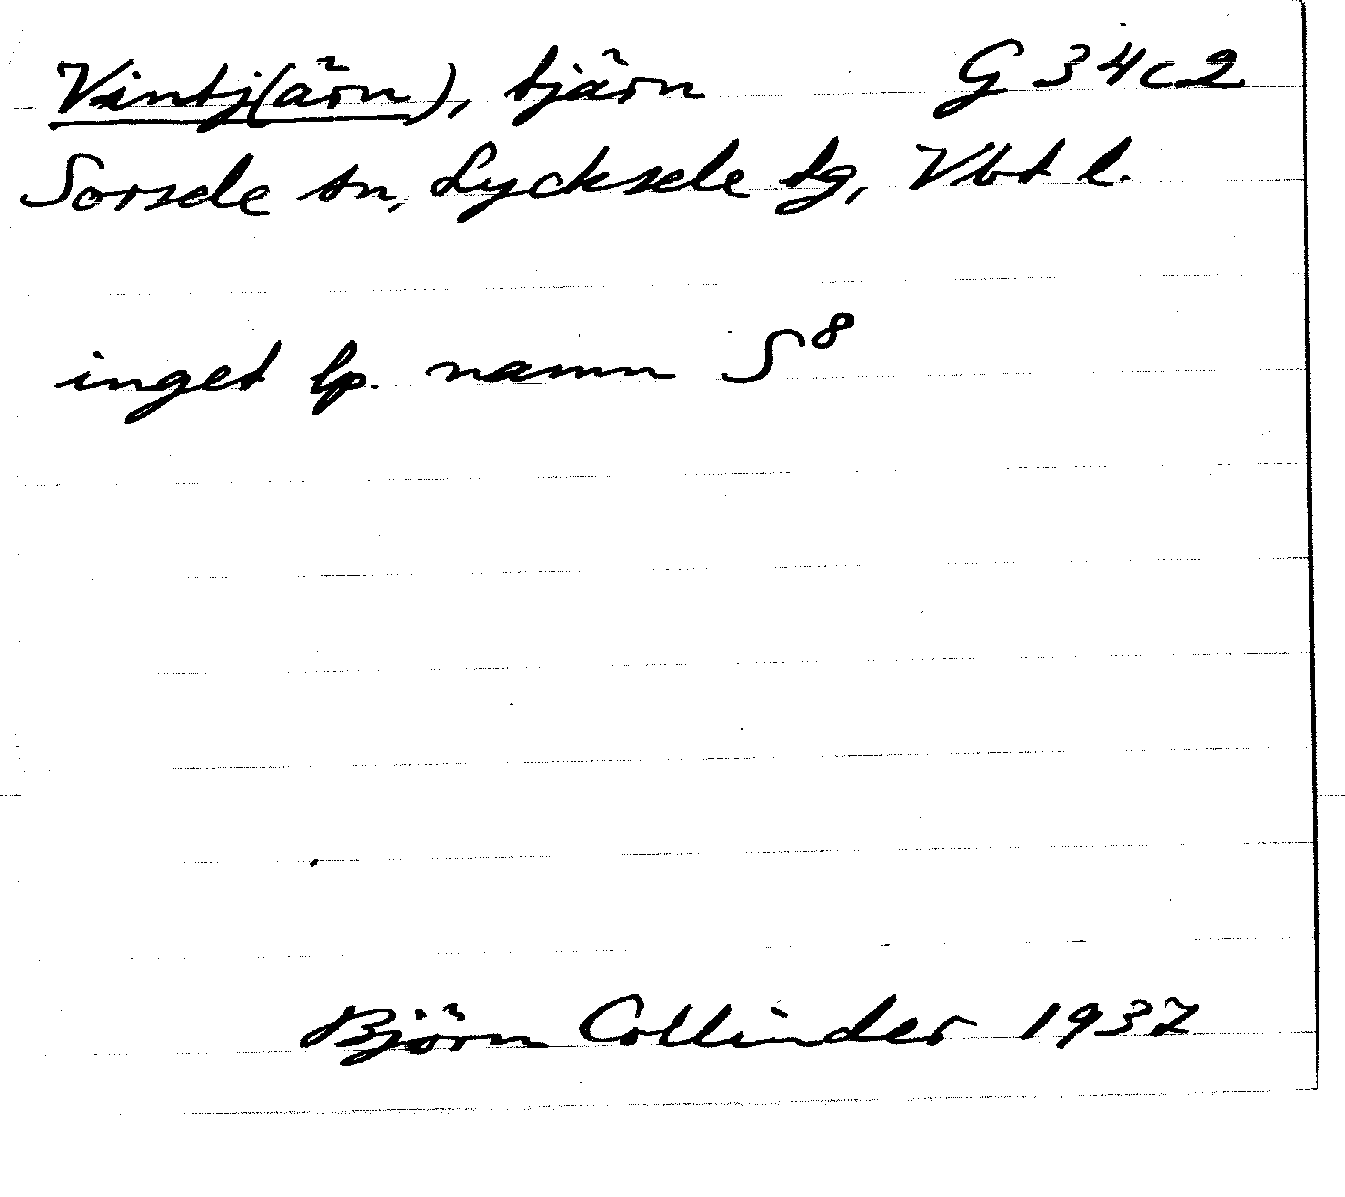 Vintj(ärn), tjärn G 34c2
Sorsele sn, Lycksele dg, Vbt l.
inget lp. namn S⁸
Björn Collinder 1937